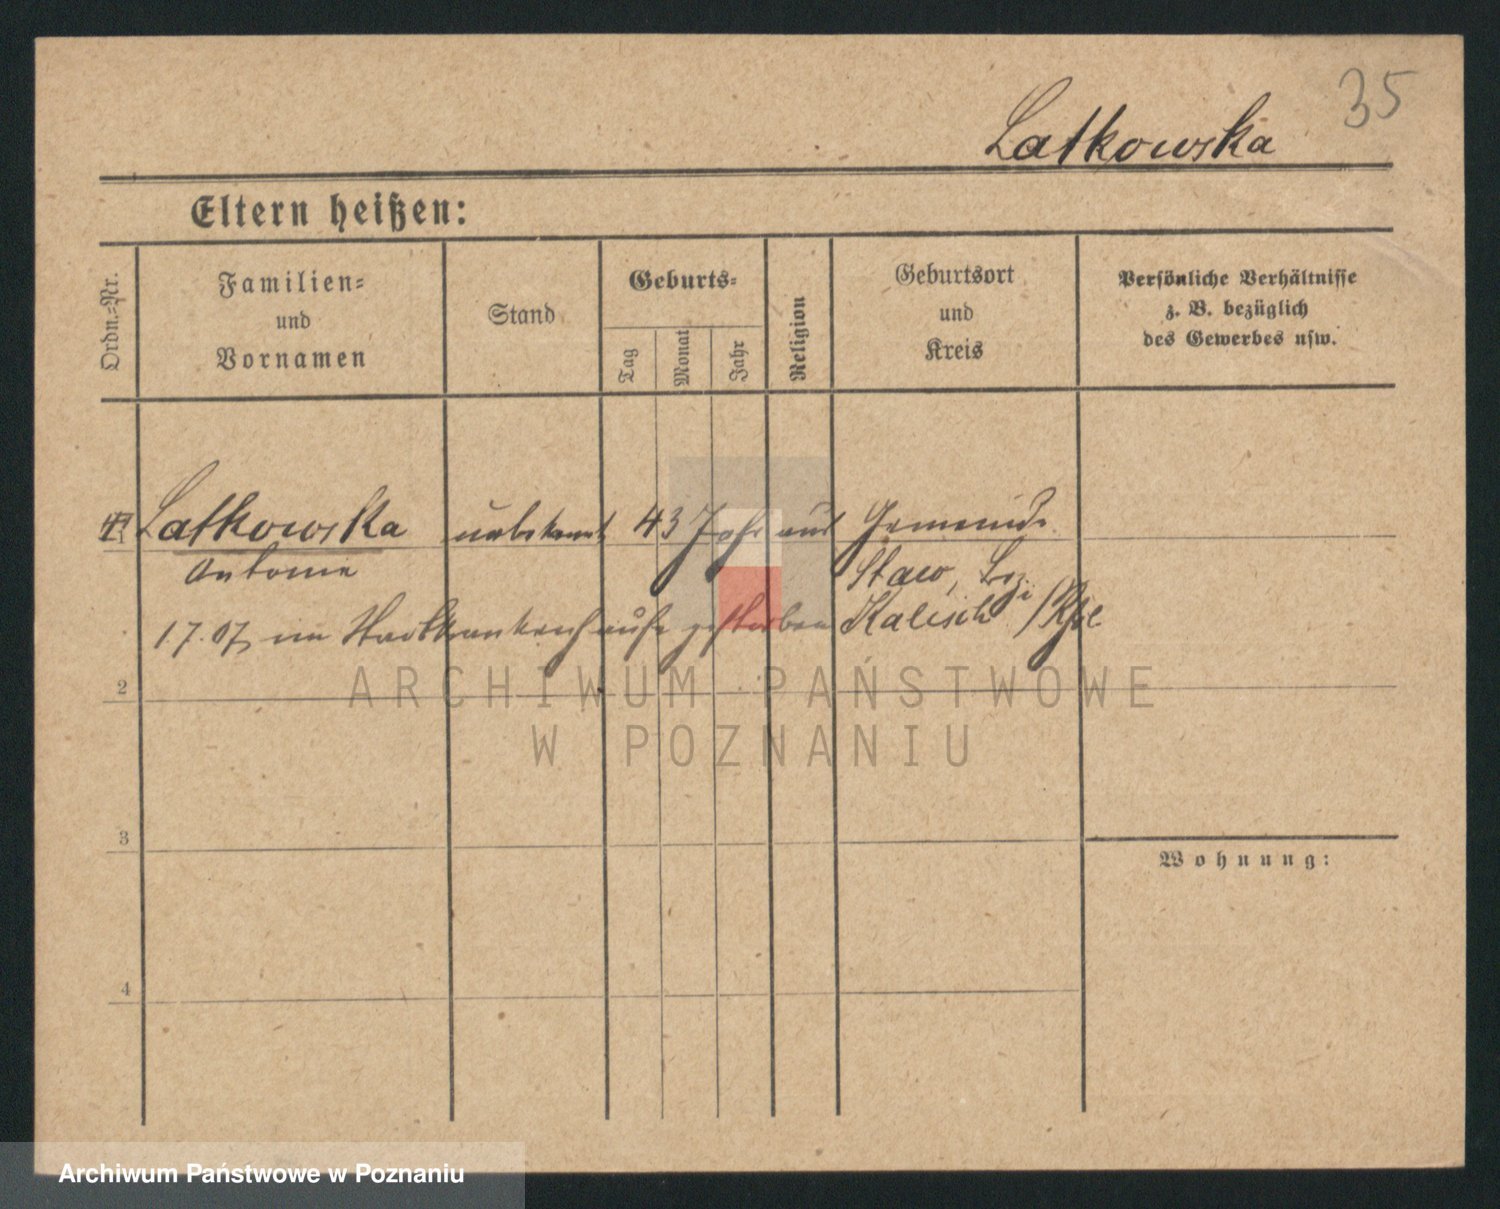 35
Latkowska
Eltern heißen:
Ordn.-Nr.
Familien-
und
Vornamen
Stand
Geburts-
Tag
Monat
Jahr
Religion
Geburtsort
und
Kreis
Persönliche Verhältnisse
z. B. bezüglich
des Gewerbes usw.
Latkowska unbekannt 43 Jahr aus Gemeinde
Antonie
Staw, Bez.
1.7.07 im Stadtkrankenhause gestorben Kalisch
2
3
4
Wohnung:
ARCHIWUM PAŃSTWOWE
W POZNANIU
Archiwum Państwowe w Poznaniu